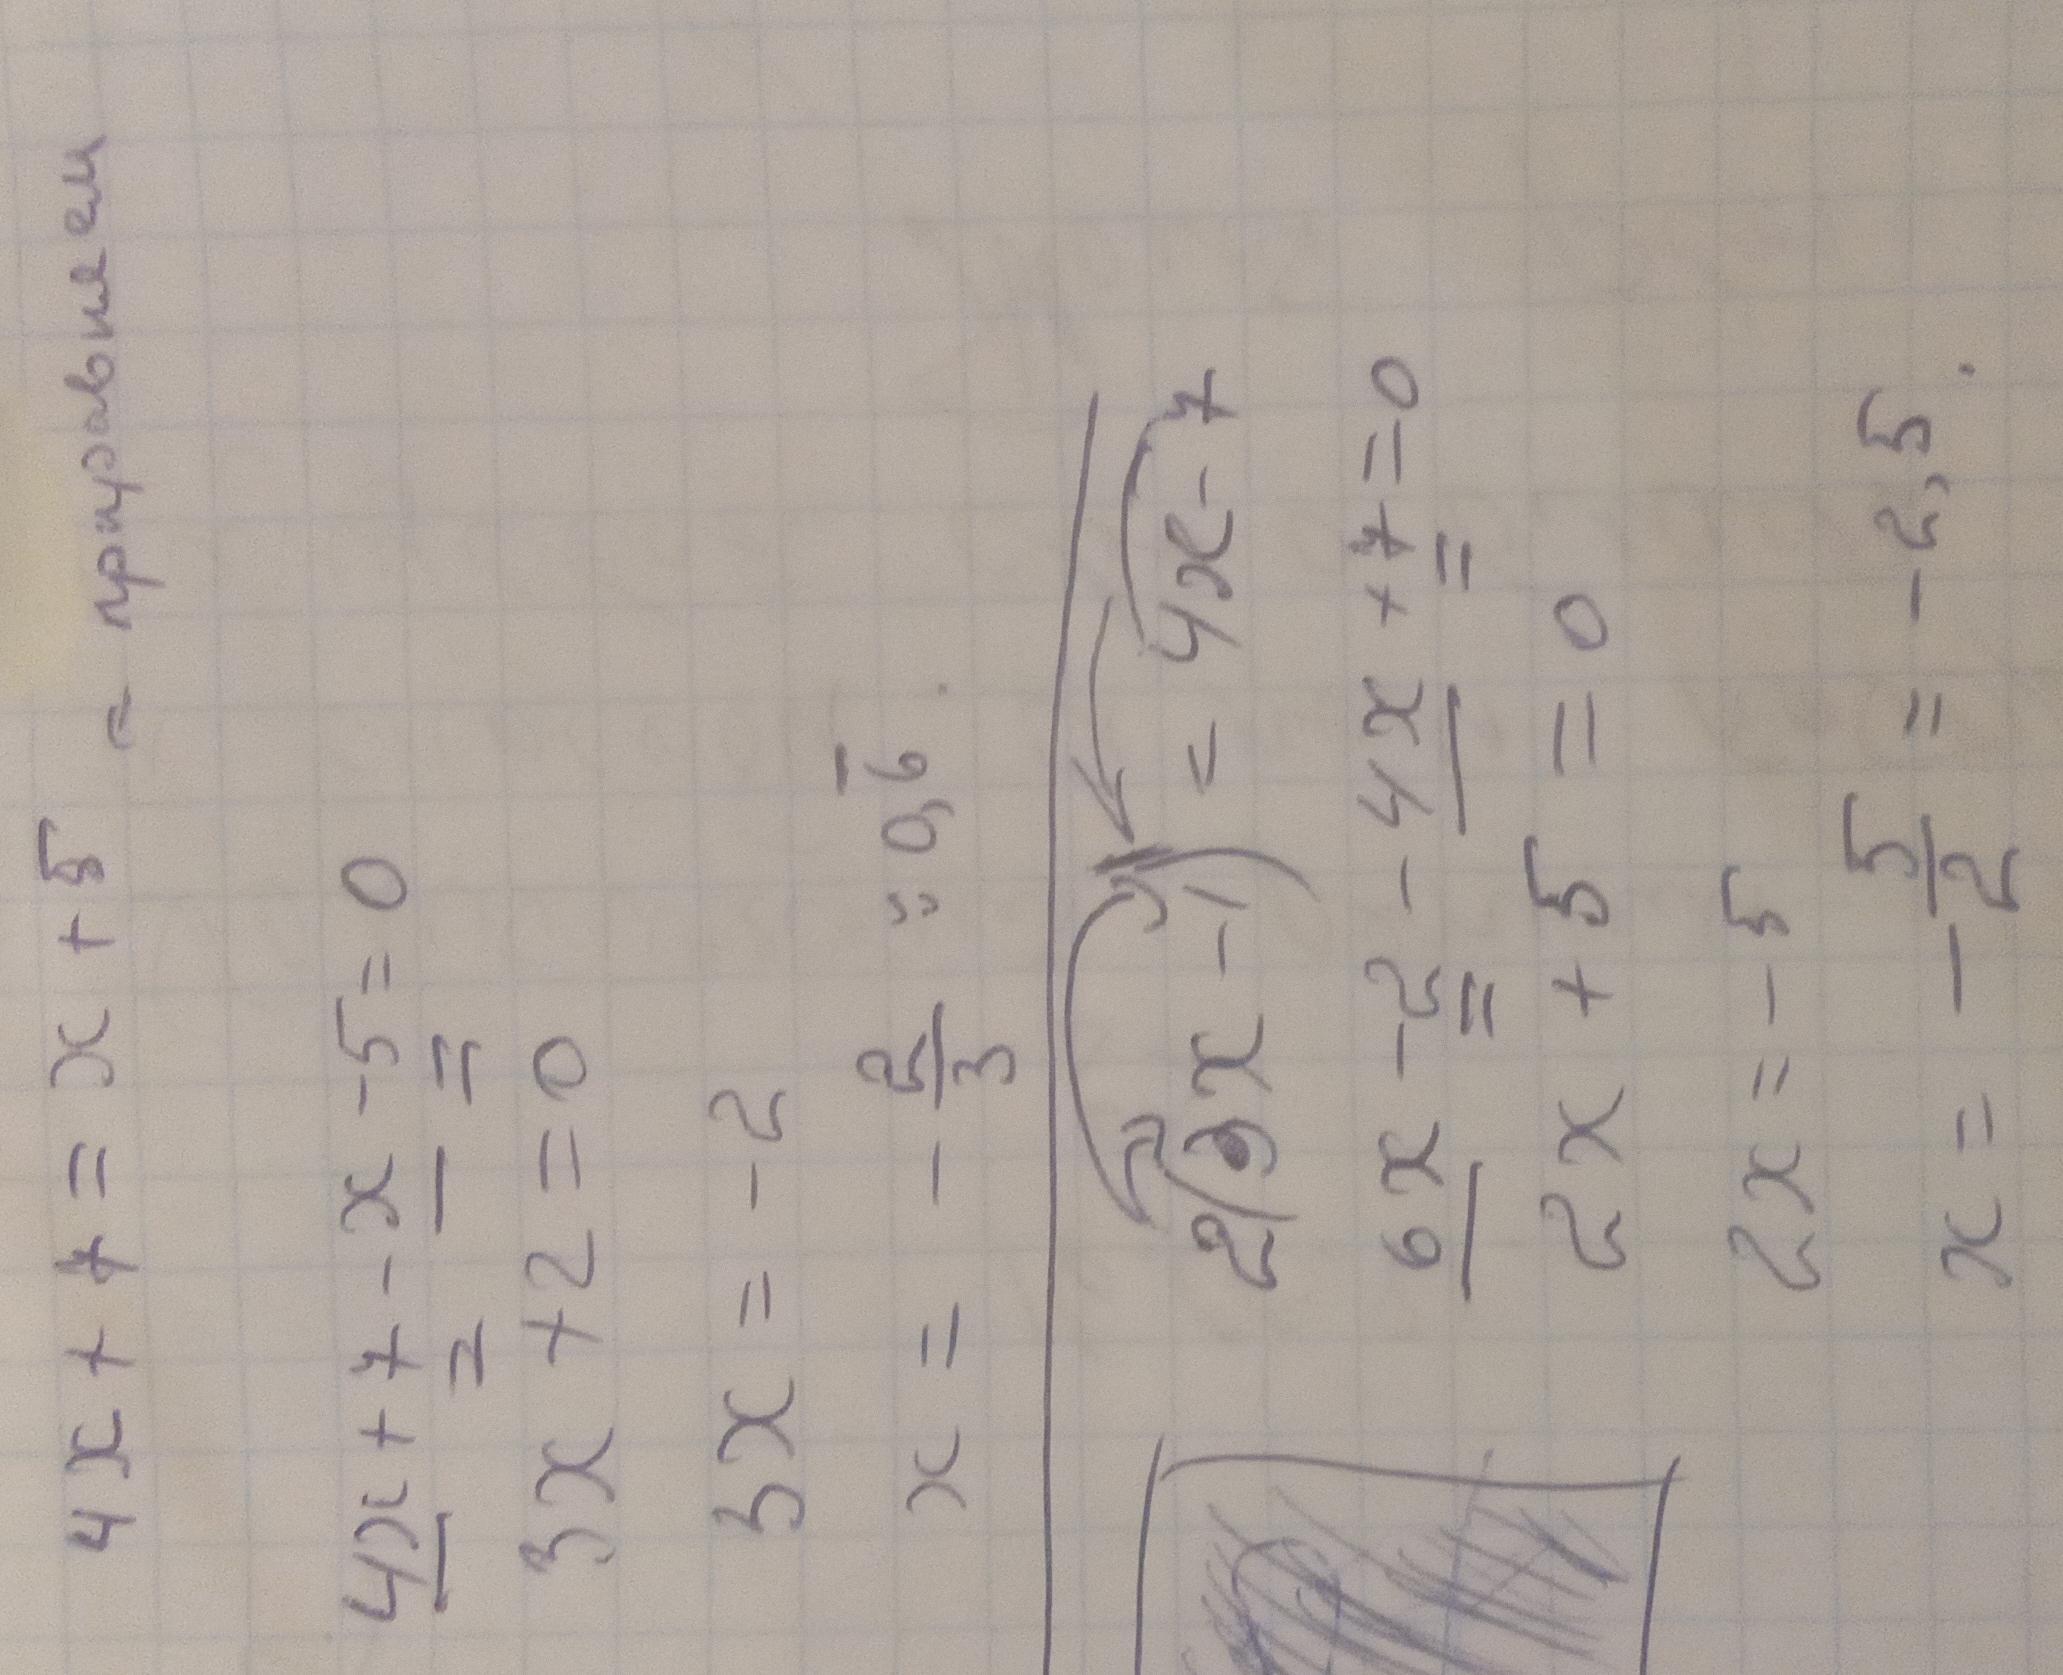 4x + 7 = x + 5 - приравняем
4x + 7 - x - 5 = 0
3x + 2 = 0
3x = -2
x = - 2/3 = 0,6̅.
2(3x - 1) = 4x - 7
6x - 2 - 4x + 7 = 0
2x + 5 = 0
2x = - 5
x = - 5/2 = - 2,5.